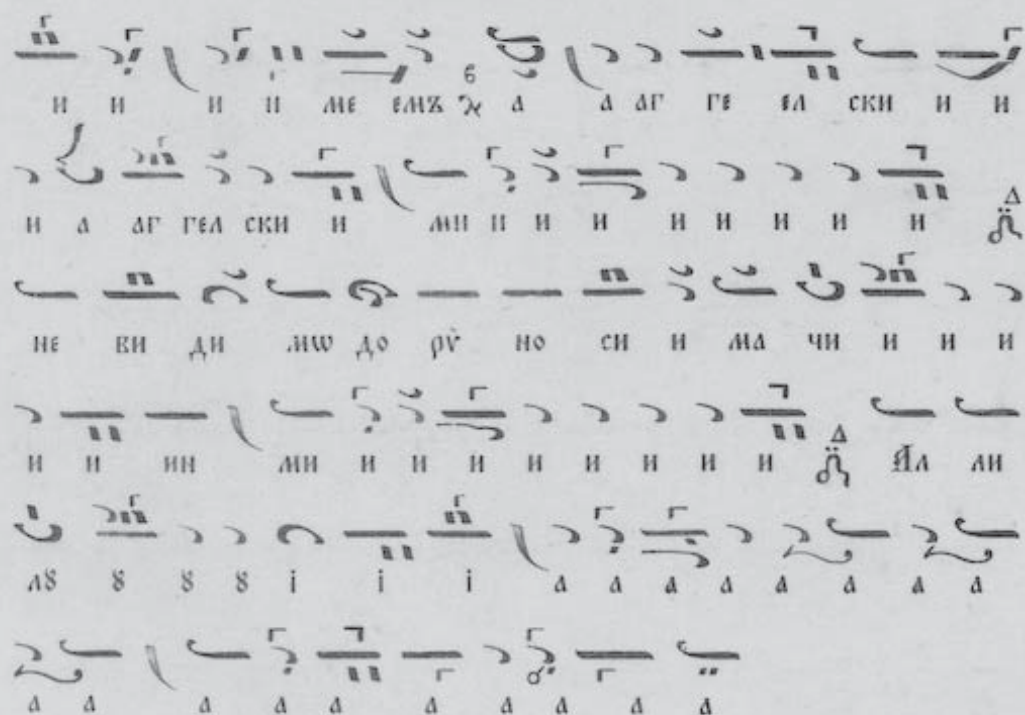 и и и и ме емъ а а аг ге ел ски и и
и а аг гел ски и ми и и и и и и и и
не ви ди мѡ до рѵ̀ но си и ма чи и и и
и и ин ми и и и и и и и и Ал ли
лꙋ ꙋ ꙋ ꙋ і і і а а а а а а а а
а а а а а а а а а а